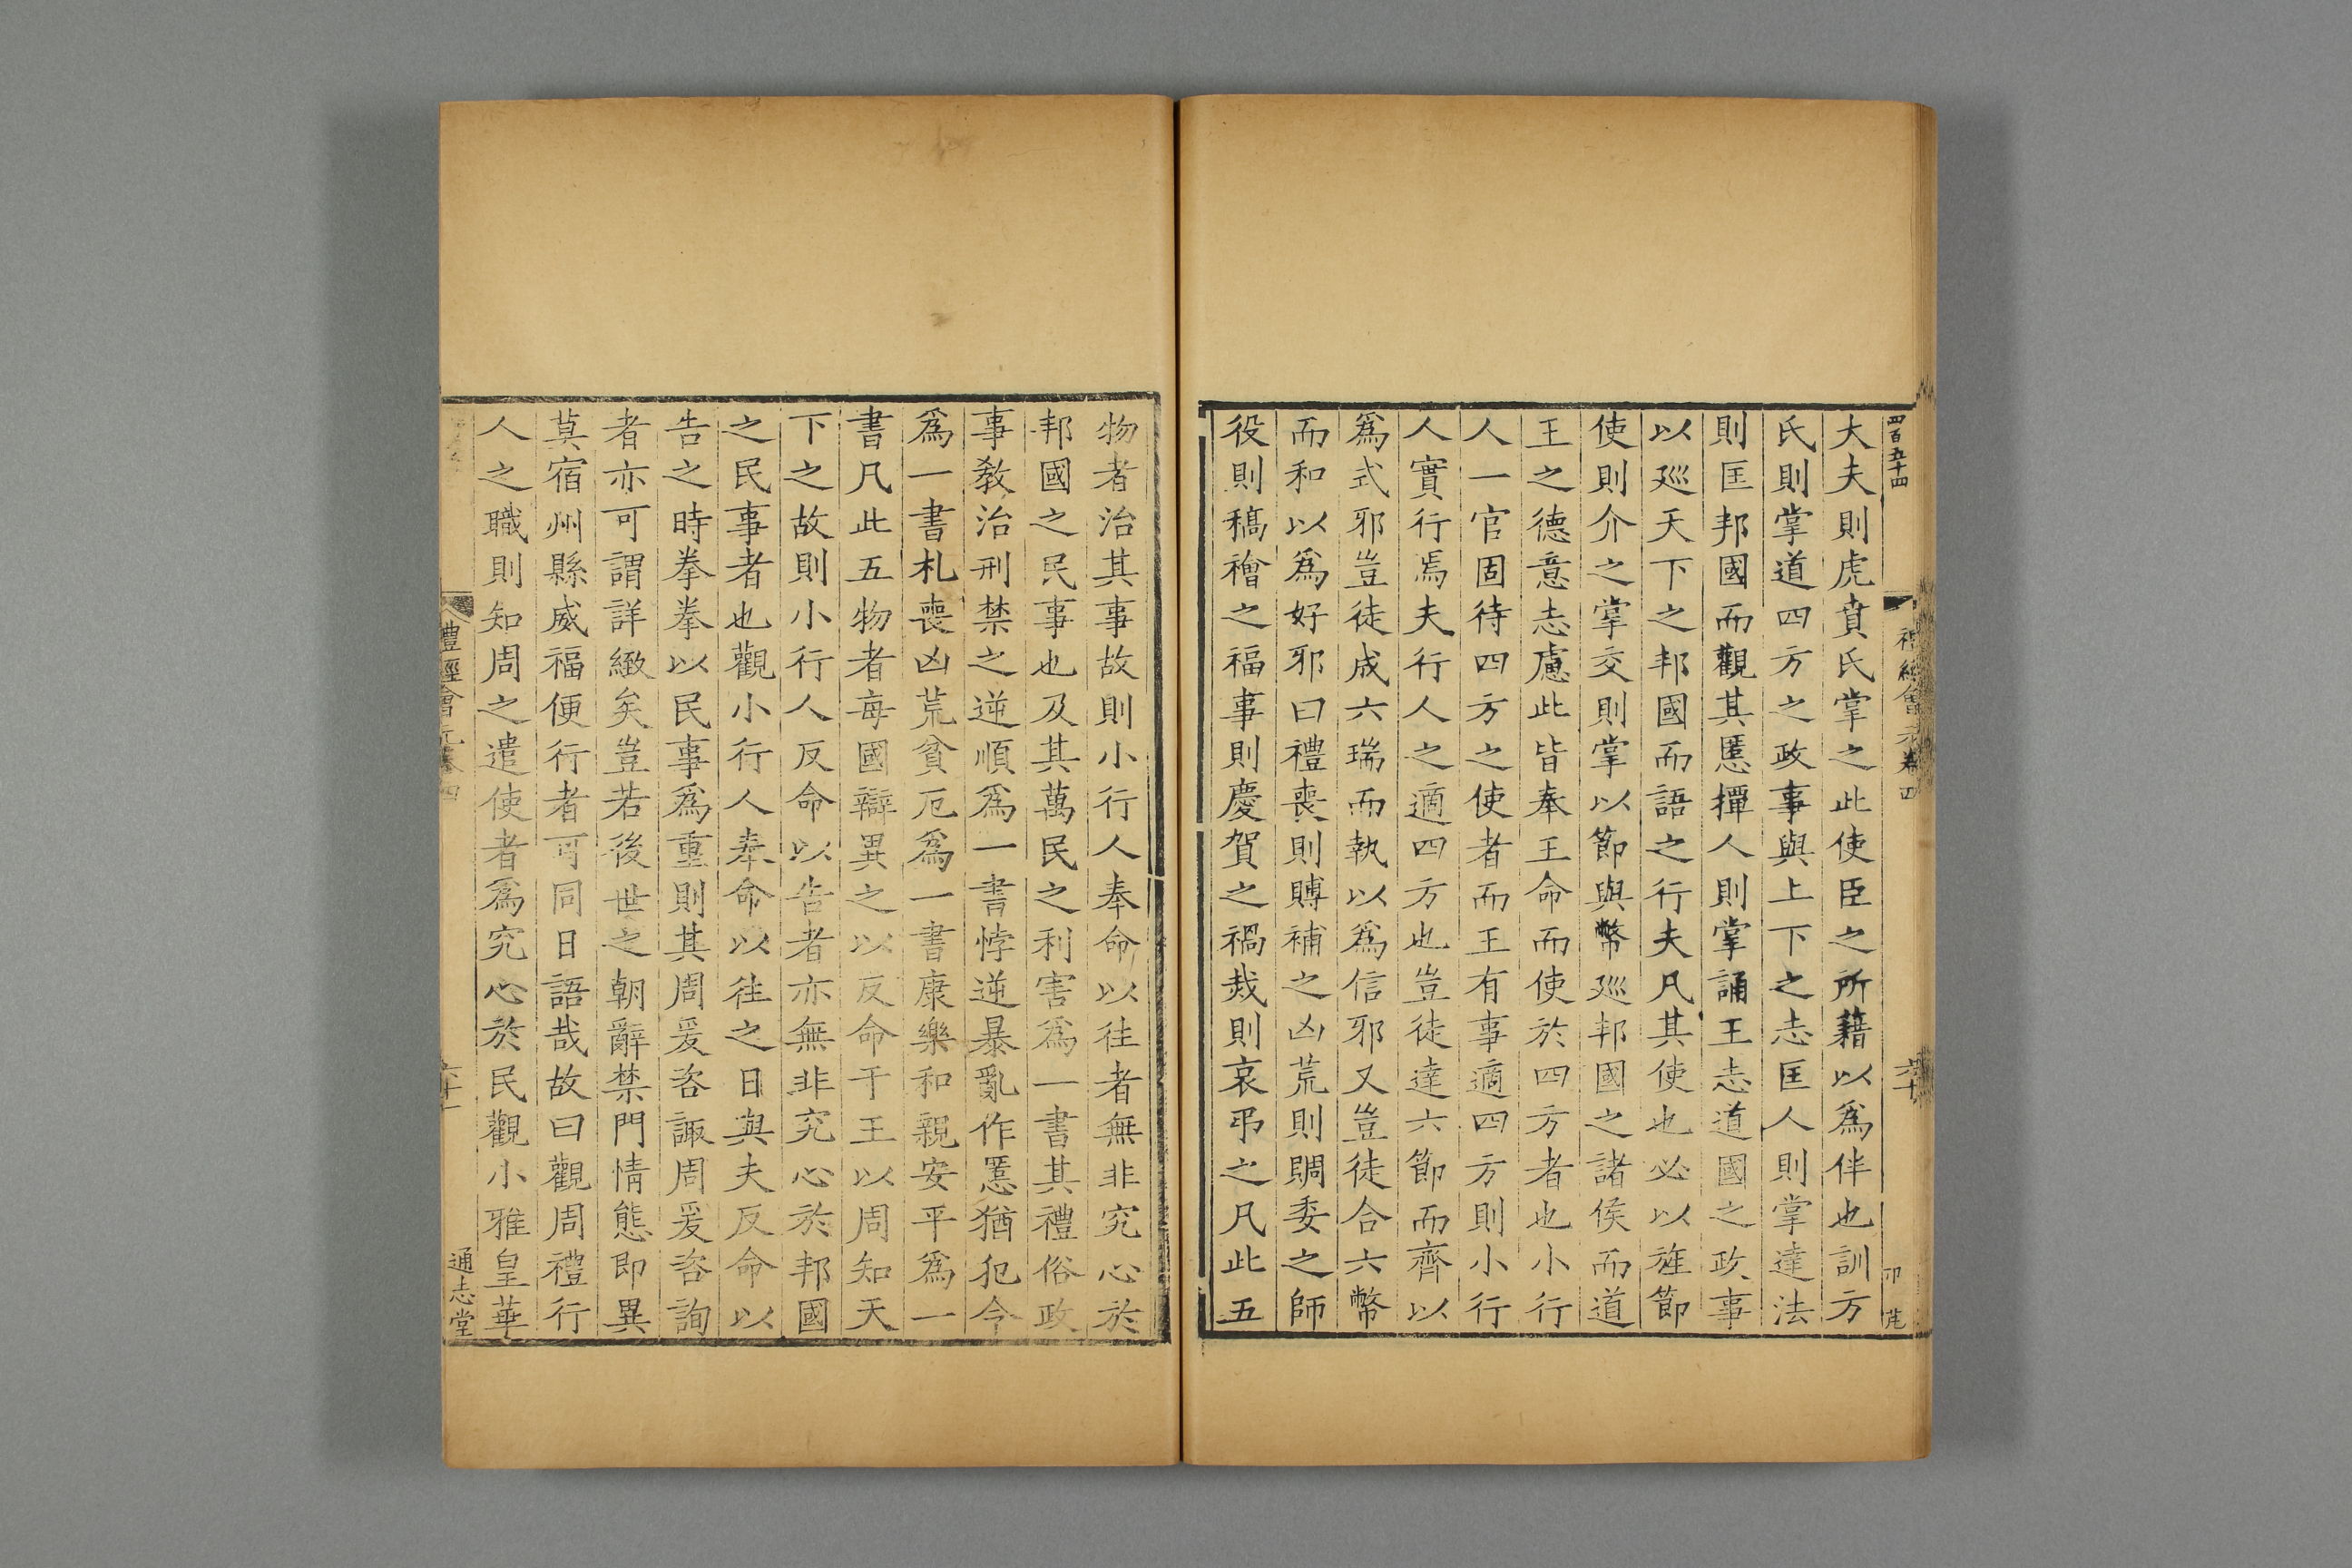 四百五十四
禮經會元卷四
六十
大夫則虎賁氏掌之此使臣之所藉以爲伴也訓方
氏則掌道四方之政事與上下之志匡人則掌達法
則匡邦國而觀其慝撢人則掌誦王志道國之政事
以廵天下之邦國而語之行夫凡其使也必以旌節
使則介之掌交則掌以節與幣廵邦國之諸侯而道
王之德意志慮此皆奉王命而使於四方者也小行
人一官固待四方之使者而王有事適四方則小行
人實行焉夫行人之適四方也豈徒達六節而齊以
爲式邪豈徒成六瑞而執以爲信邪又豈徒合六幣
而和以爲好邪曰禮喪則賻補之凶荒則賙委之師
役則犒禬之福事則慶賀之禍烖則哀弔之凡此五
物者治其事故則小行人奉命以往者無非究心於
邦國之民事也及其萬民之利害爲一書其禮俗政
事教治刑禁之逆順爲一書悖逆暴亂作慝猶犯令
爲一書札喪凶荒貧厄爲一書康樂和親安平爲一
書凡此五物者每國辯異之以反命于王以周知天
下之故則小行人反命以告者亦無非究心於邦國
之民事者也觀小行人奉命以往之日與夫反命以
告之時拳拳以民事爲重則其周爰咨諏周爰咨詢
者亦可謂詳緻矣豈若後世之朝辭禁門情態即異
莫宿州縣威福便行者可同日語哉故曰觀周禮行
人之職則知周之遣使者爲究心於民觀小雅皇華
禮經會元卷四
六十一
通志堂